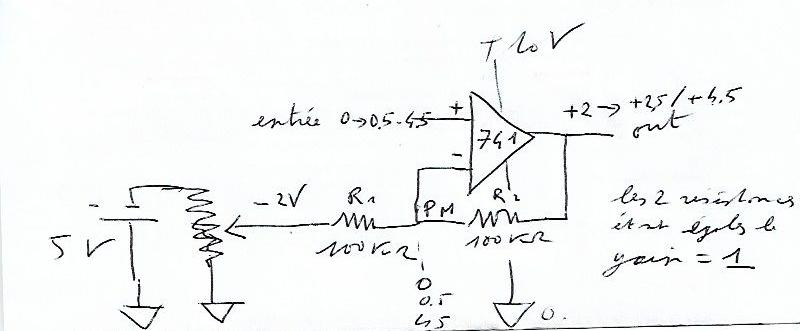 + 10 V
entrée 0→0.5-4.5
+
-
741
+2→+25/+4.5
out
-
5 V
-2V
R1
100KΩ
PM
R2
100KΩ
0
0.5
4.5
0.
les 2 résistances
étant égales le
gain = 1